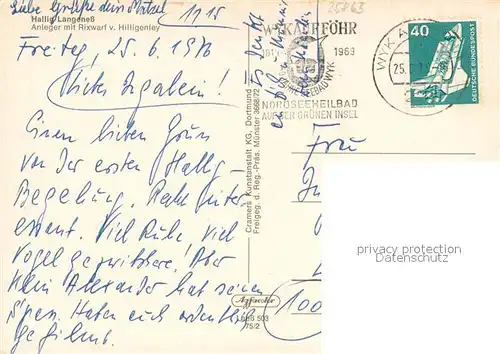 Liebe Grüße dein
1115
Hallig Langeneß
Anleger mit Rixwarf v. Hilligenley
Freitag, 25.6.1976
Einen lieben Gruß
von der ersten Hallig-
Begehung. Recht inter
essant. Viel Ruhe, viel
Vogelgezwitscher! Aber
Klein Alexander hat seinen
Spass. Haben euch ordentlich
gefilmt.
Cramers Kunstanstalt KG, Dortmund
Freigeg. d. Reg.-Präs. Münster 3668/72
25863
WYK AUF FÖHR
1819
1969
SEEBAD WYK
NORDSEEHEILBAD
AUF DER GRÜNEN INSEL
WYK A
25.
40
DEUTSCHE BUNDESPOST
Frau
privacy protection
Datenschutz
100
Agfacolor
503
75/2